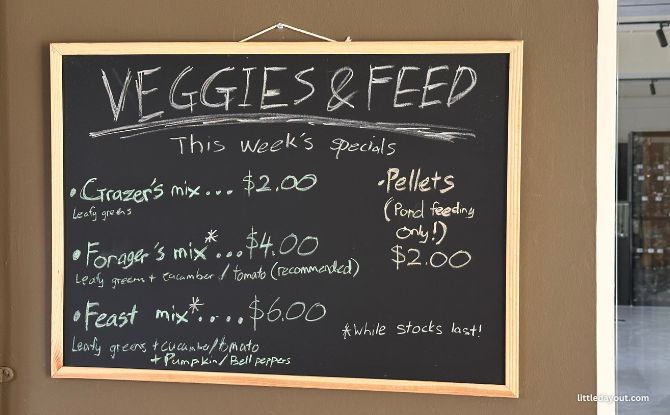 VEGGIES & FEED
This week's specials
• Grazer's mix... $2.00
Leafy greens
• Forager's mix*...$4.00
Leafy greens + cucumber/tomato (recommended)
• Feast mix*....$6.00
Leafy greens + cucumber/tomato
+ Pumpkin/Bell peppers
• Pellets
(Pond feeding
only!)
$2.00
*while stocks last!
littledayout.com